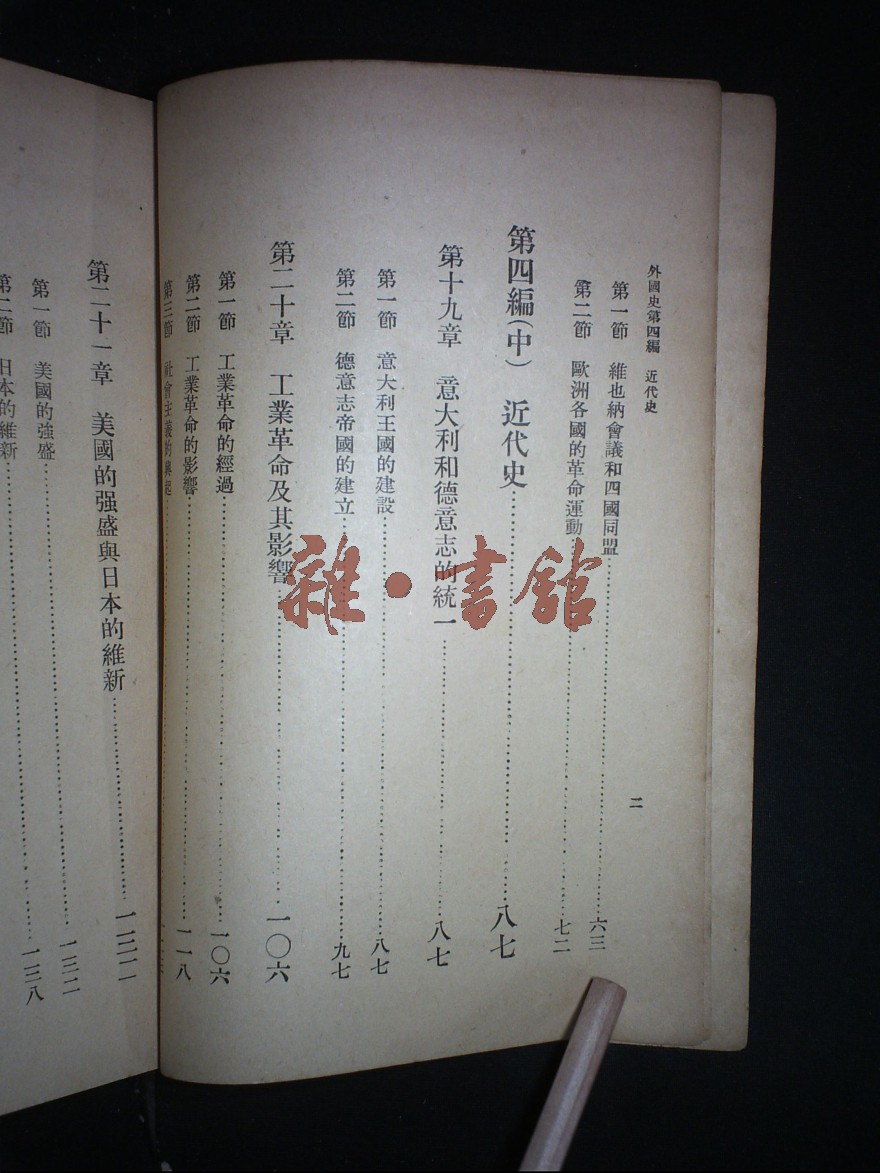 外國史第四編 近代史
二
第一節 維也納會議和四國同盟……六三
第二節 歐洲各國的革命運動……七二
第四編(中) 近代史……八七
第十九章 意大利和德意志的統一……八七
第一節 意大利王國的建設……八七
第二節 德意志帝國的建立……九七
第二十章 工業革命及其影響……一〇六
第一節 工業革命的經過……一〇六
第二節 工業革命的影響……一一八
第三節 社會主義的興起
第二十一章 美國的强盛與日本的維新……一三二
第一節 美國的強盛……一三二
第二節 日本的維新……一三八
雜·書館